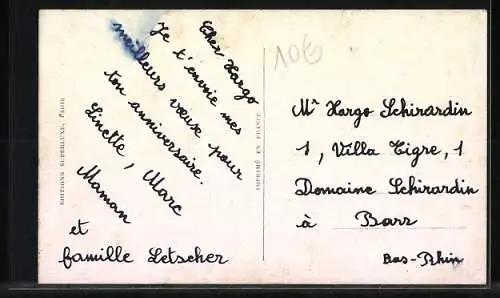 Cher Hargo
Je t'envoie mes
meilleurs vœux pour
ton anniversaire.
Linette, Marc
Maman
et
famille Letscher
EDITIONS SUPERLUXE, PARIS
IMPRIMÉ EN FRANCE
10€
Mr Hargo Schirardin
1, Villa Tigre, 1
Domaine Schirardin
à Barr
Bas-Rhin